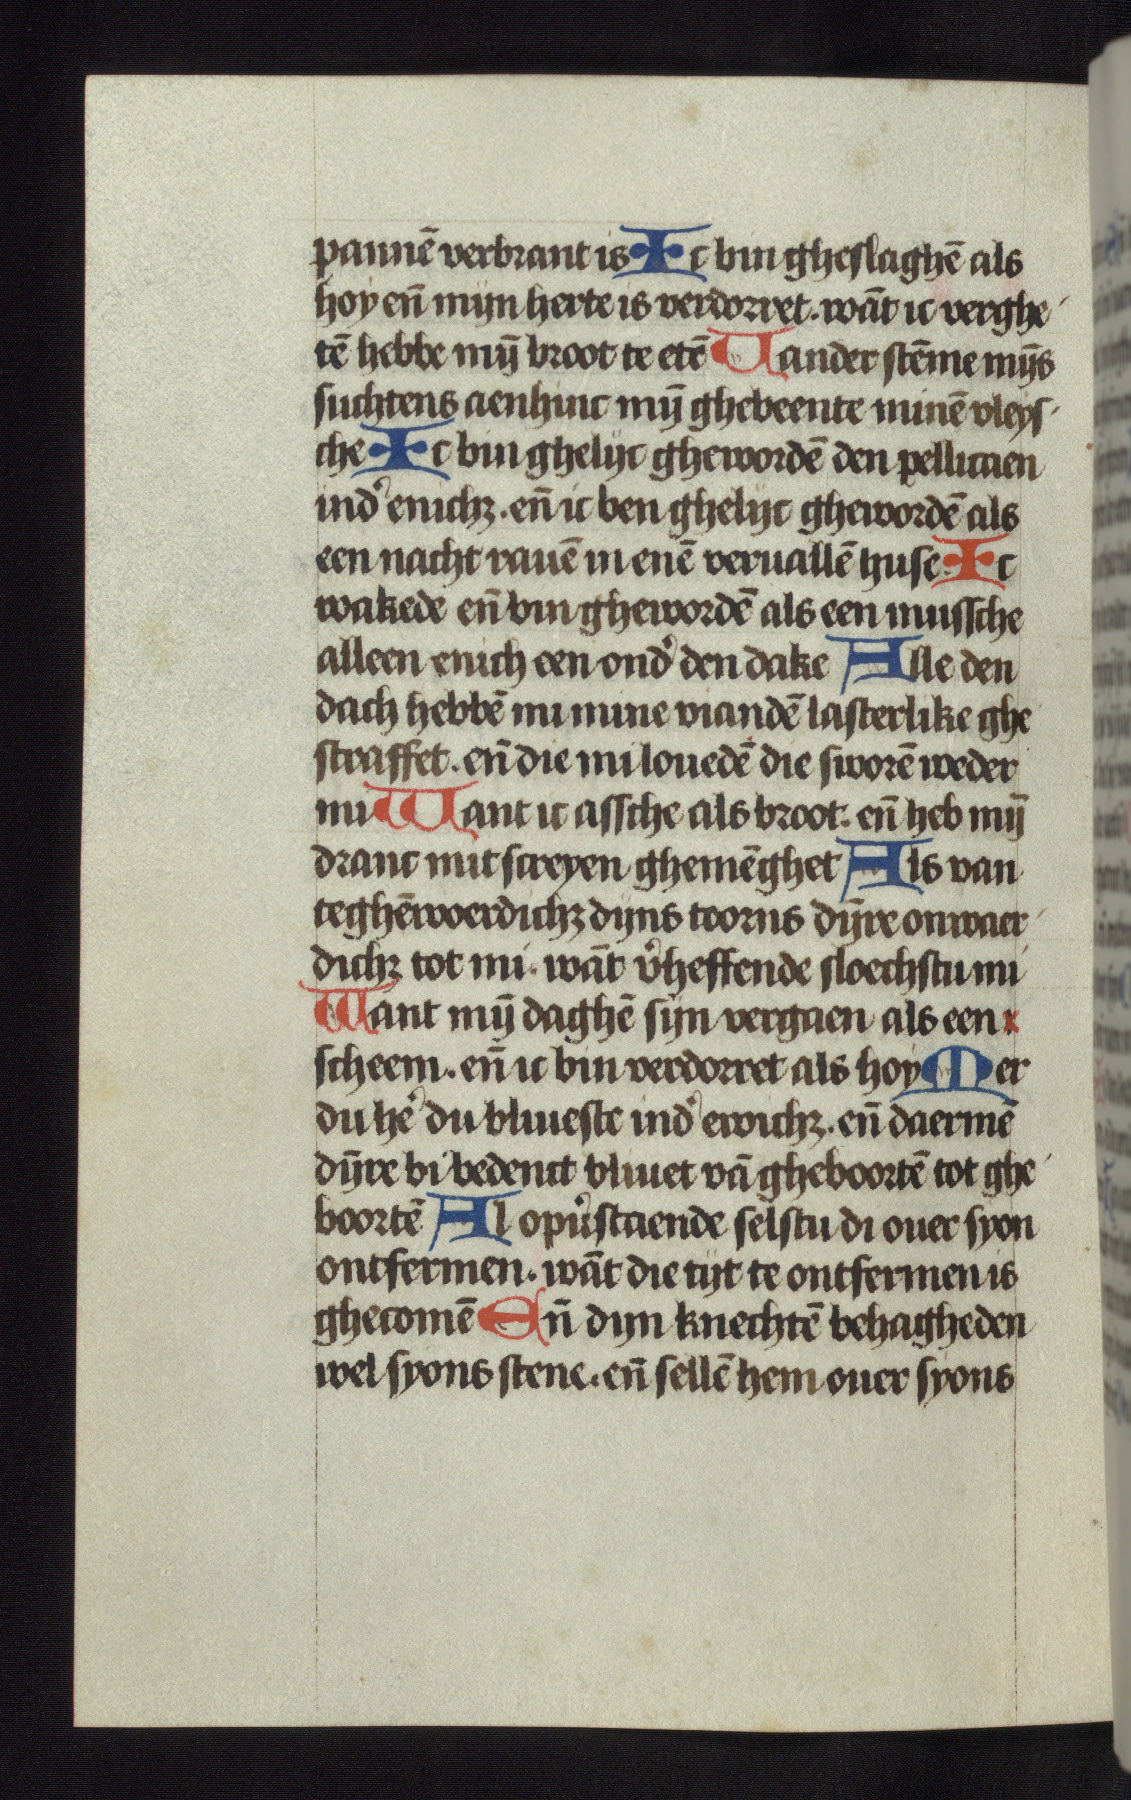 pannē verbrant is Ic bin gheslaghē als
hoy eñ mijn herte is verdorret. wāt ic verghe
tē hebbe mȳ broot te etē Uander stēme mijs
suchtens aenhinc mȳ ghebeente minē vleys
che Ic bin ghelijc ghewordē den pellicaen
indʾ enichꝫ. eñ ic ben ghelijc ghewordē als
een nacht rauē in enē veruallē huse Ic
wakede eñ bin ghewordē als een mussche
alleen enich een ondʾ den dake Alle den
dach hebbē mi mine viandē lasterlike ghe
straffet. eñ die mi louedē die sworē weder
mi Want ic assche als broot. eñ heb mȳ
dranc mit screyen ghemēghet Als van
teghēwoerdichꝫ dijns toorns dȳre onwaer
dichꝫ tot mi. wāt vʾheffende sloechstu mi
Want mȳ daghē sijn vergaen als een
scheem. eñ ic bin verdorret als hoy Mer
du hēʾ du bliueste indʾ ewichꝫ. eñ daermē
dȳre bi bedenct bliuet vā gheboortē tot ghe
boortē Al opuʾstaende selstu di ouer syon
ontfermen. wāt die tijt te ontfermen is
ghecomē Eñ dijn knechtē behagheden
wel syons stene. eñ sellē hem ouer syons